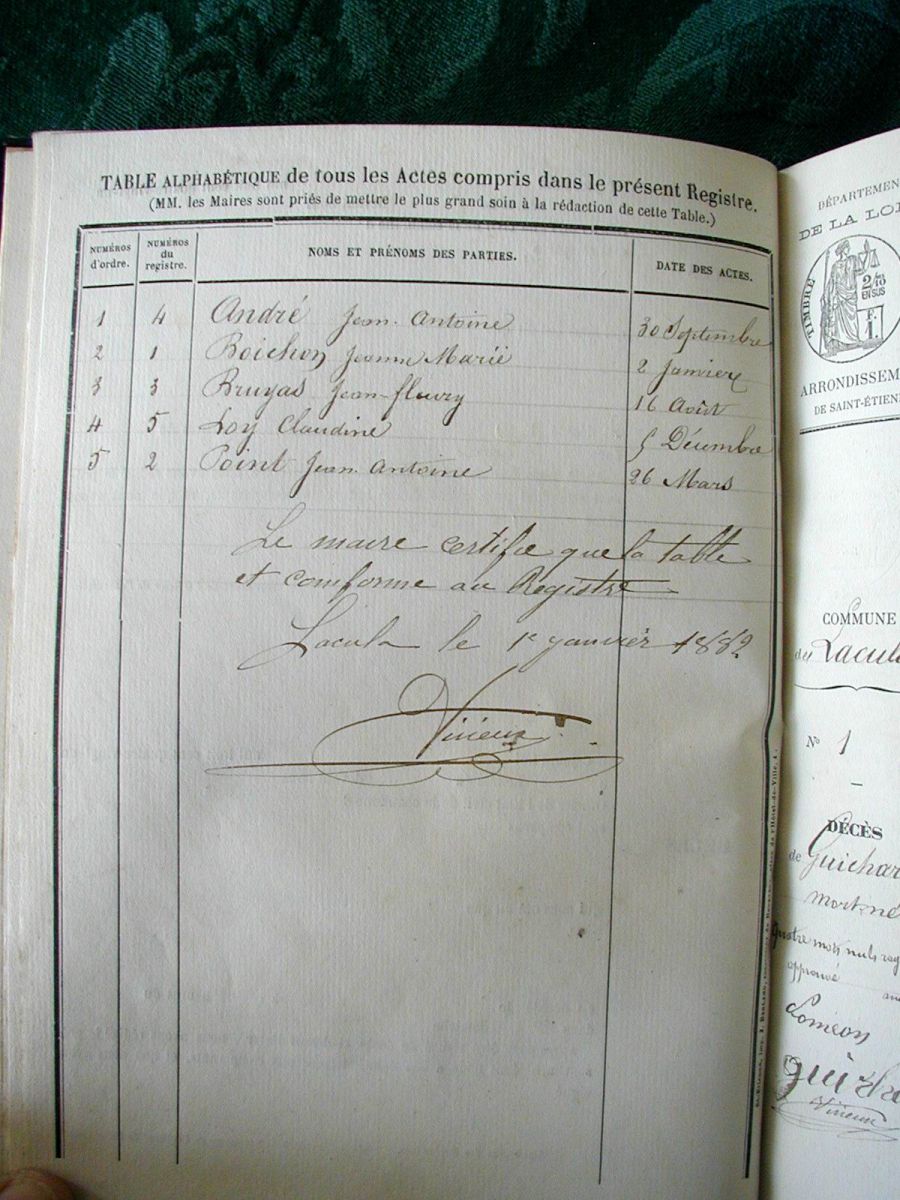 TABLE ALPHABÉTIQUE de tous les Actes compris dans le présent Registre.
(MM. les Maires sont priés de mettre le plus grand soin à la rédaction de cette Table.)
NUMÉROS d'ordre. NUMÉROS du registre. NOMS ET PRÉNOMS DES PARTIES. DATE DES ACTES.
1 4 André Jean Antoine 30 Septembre
2 1 Boichon Jeanne Marie 2 Janvier
3 3 Bruyas Jean-fleury 16 Août
4 5 Loy Claudine 5 Décembre
5 2 Point Jean Antoine 26 Mars
Le maire certifie que la table
et comforme au Registre
Lacula le 1er janvier 1882
DÉPARTEMEN
DE LA LOI
TIMBRE
2/10
EN SUS
F.
1.
ARRONDISSEM
DE SAINT-ÉTIEN
COMMUNE
de Lacula
N° 1
—
DÉCÈS
de Guichar
mort né
quatre mots nuls ray
approuvé